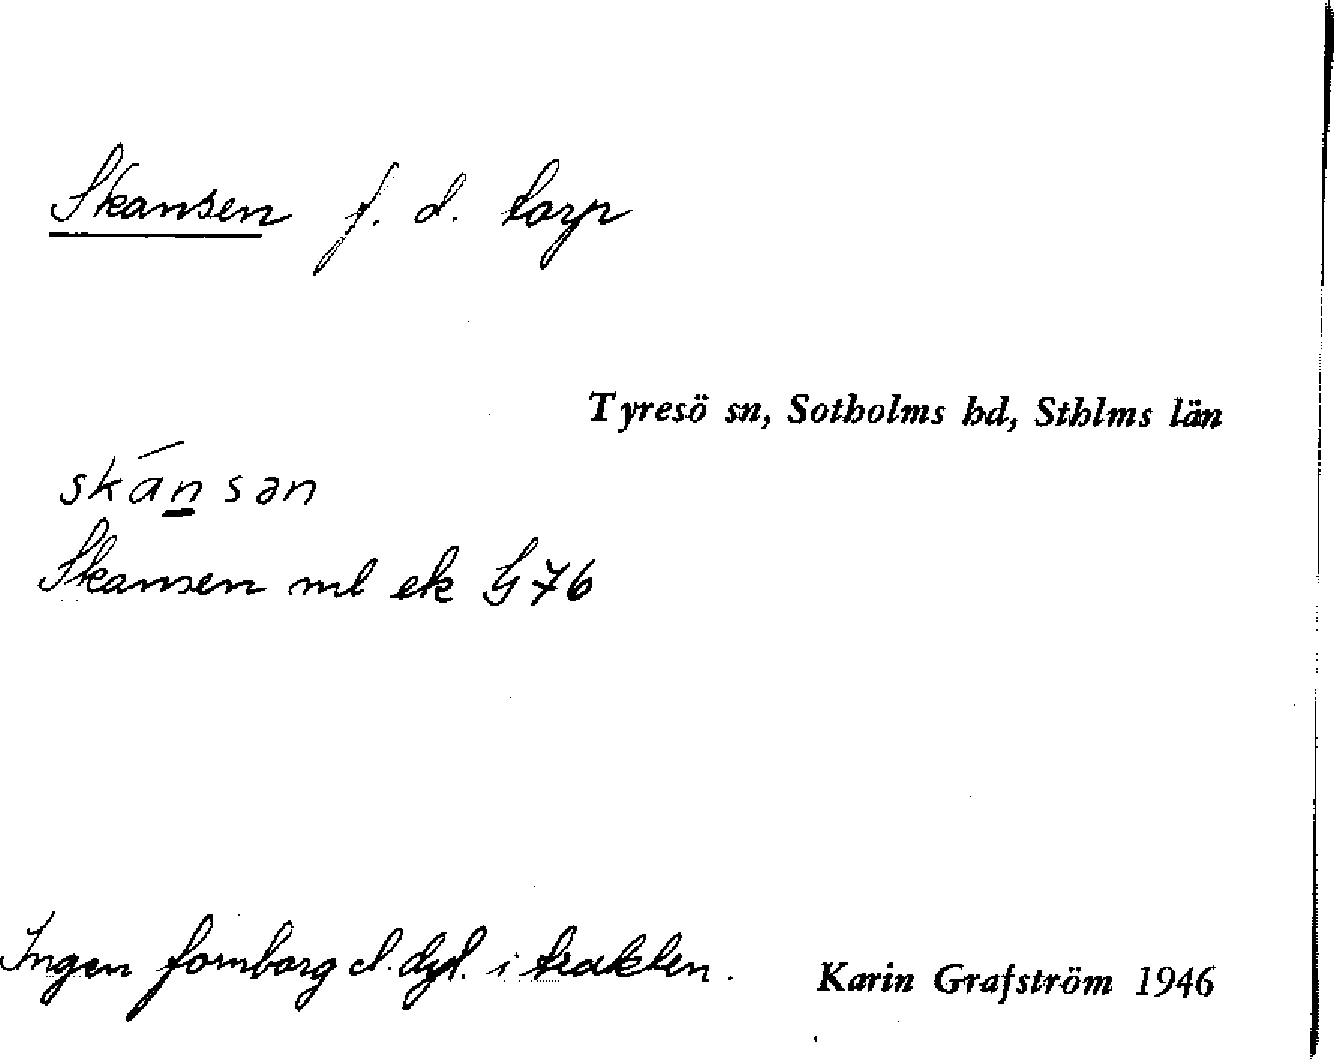 Skansen f. d. torp
Tyresö sn, Sotholms hd, Sthlms län
skánsən
Skansen ml ek G 76
Ingen fornborg el. dyl. i trakten.
Karin Grafström 1946